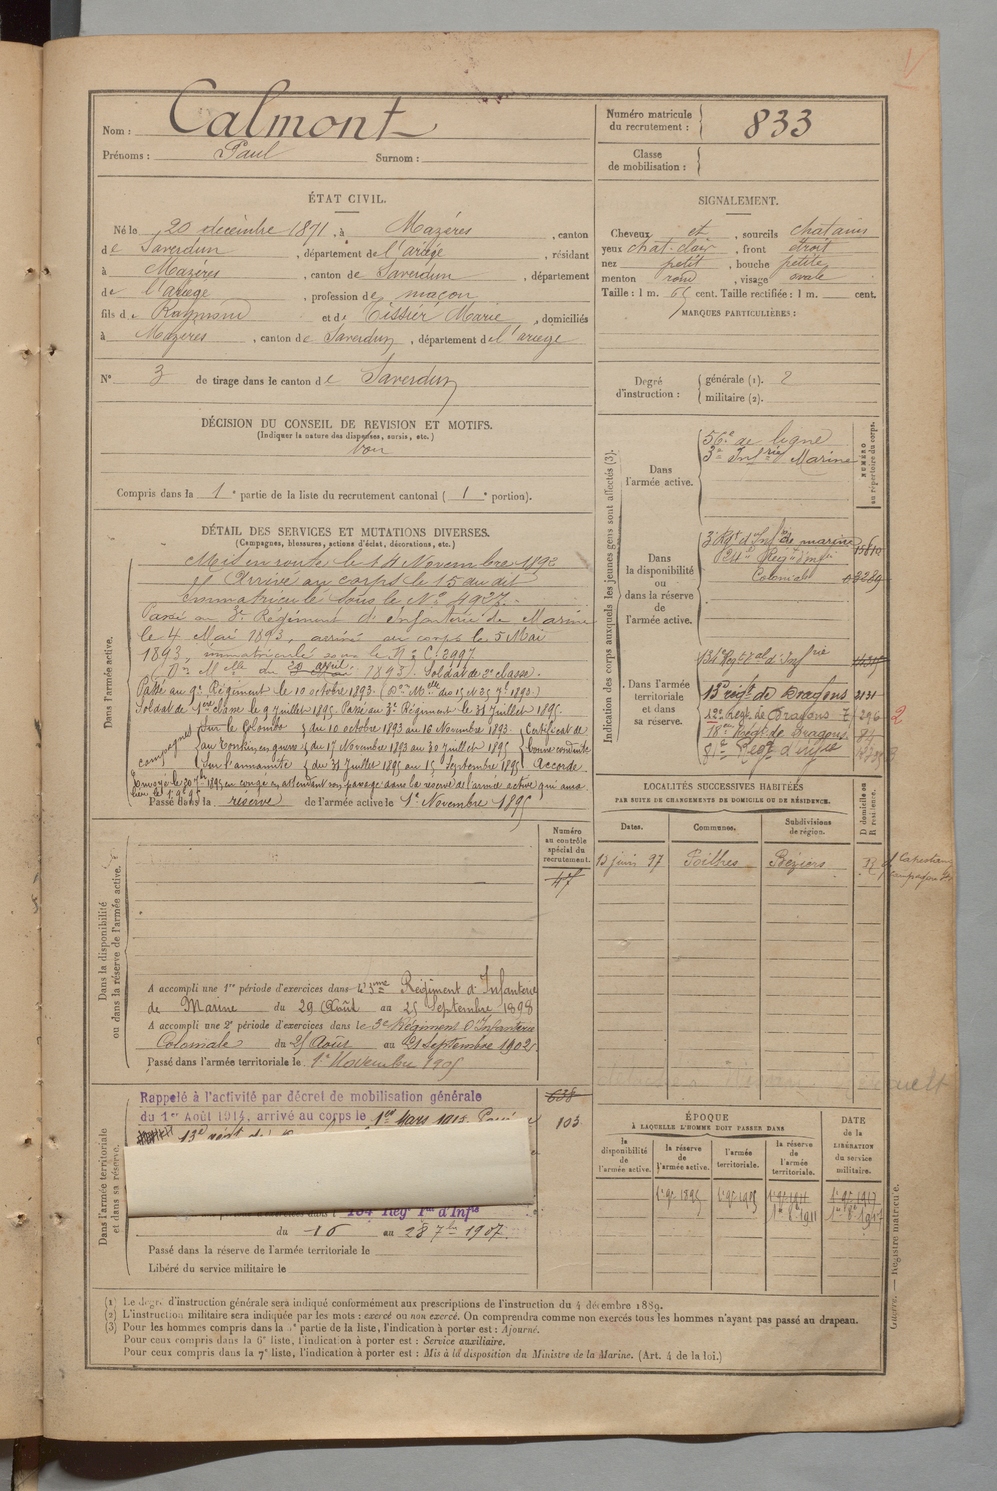 Nom : Calmont
Prénoms : Paul Surnom :
Numéro matricule du recrutement : 833
Classe de mobilisation :
ÉTAT CIVIL.
Né le 20 décembre 1871, à Mazères, canton
de Saverdun, département de l'ariège, résidant
à Mazères, canton de Saverdun, département
de l'ariège, profession de maçon
fils de Raymond et de Tissié Marie, domiciliés
à Mazères, canton de Saverdun, département de l'ariège
N° 3 de tirage dans le canton de Saverdun
SIGNALEMENT.
Cheveux et, sourcils chatains
yeux chat. clair, front étroit
nez petit, bouche petite
menton rond, visage ovale
Taille : 1 m. 65 cent. Taille rectifiée : 1 m. cent.
MARQUES PARTICULIÈRES :
Degré d'instruction : générale (1). 2
militaire (2).
DÉCISION DU CONSEIL DE REVISION ET MOTIFS.
(Indiquer la nature des dispenses, sursis, etc.)
bon
Compris dans la 1e partie de la liste du recrutement cantonal (1e portion).
DÉTAIL DES SERVICES ET MUTATIONS DIVERSES.
(Campagnes, blessures, actions d'éclat, décorations, etc.)
Dans l'armée active.
Mis en route le 14 Novembre 1892
et Arrivé au corps le 15 du dit
immatriculé sous le N° 4927.
Passé au 3e Régiment d'infanterie de Marine
le 4 Mai 1893, arrivé au corps le 5 Mai
1893, immatriculé sous le n°
1893). Soldat de 2e classe.
Passé au 9e Régiment le 10 octobre 1893.
Soldat de 1ère classe le 9 juillet 1895. Passé au 3e Régiment le 31 Juillet 1895.
campagnes
Sur le Colombo du 10 octobre 1893 au 16 Novembre 1893. Certificat de
au Tonkin en guerre du 17 Novembre 1893 au 30 Juillet 1895 bonne conduite
Sur l'annamite du 31 Juillet 1895 au 15 Septembre 1895 Accordé
Envoyé le 20 7bre 1895 en congé en attendant son passage dans la réserve de l'armée active qui aura
Passé dans la réserve de l'armée active le 1er Novembre 1895
Indication des corps auxquels les jeunes gens sont affectés (3).
NUMÉRO au répertoire du corps.
Dans l'armée active.
56e de ligne
3e Infrie Marine
Dans la disponibilité ou dans la réserve de l'armée active.
3e Rgt d'Inf de marine
24e Regt d'inf
Colonial
Dans l'armée territoriale et dans sa réserve.
134e Regt Tal d'Infrie
13e régt de Dragons 2131
19e Regt de Dragons 296
2
18e Régt de Dragons
LOCALITÉS SUCCESSIVES HABITÉES
PAR SUITE DE CHANGEMENTS DE DOMICILE OU DE RÉSIDENCE.
Dates. Communes. Subdivisions de région. D domicile ou R résidence.
13 juin 97 Poilhes Béziers R
Dans la disponibilité ou dans la réserve de l'armée active.
Numéro au contrôle spécial du recrutement.
47
A accompli une 1re période d'exercices dans le 3me Régiment d'Infanterie
de Marine du 29 Août au 25 Septembre 1898
A accompli une 2e période d'exercices dans le 3e Régiment d'Infanterie
Coloniale du 25 Août au 21 Septembre 1902
Passé dans l'armée territoriale le 1er Novembre 1905
Dans l'armée territoriale et dans sa réserve.
Rappelé à l'activité par décret de mobilisation générale
du 1er Août 1914, arrivé au corps le 1er Mars 1915. Passé
13e régt de
638
103
134 Reg Tal d'Infie
du 16 au 28 7bre 1907.
Passé dans la réserve de l'armée territoriale le
Libéré du service militaire le
ÉPOQUE
À LAQUELLE L'HOMME DOIT PASSER DANS
la disponibilité de l'armée active.
la réserve de l'armée active.
l'armée territoriale.
la réserve de l'armée territoriale.
DATE de la LIBÉRATION du service militaire.
1er 9e 1895 1er 9e 1905 1er 9e 1911 1er 9e 1917
1er 8e 1911 1er 8e 1917
(1) Le degré d'instruction générale sera indiqué conformément aux prescriptions de l'instruction du 4 décembre 1889.
(2) L'instruction militaire sera indiquée par les mots : exercé ou non exercé. On comprendra comme non exercés tous les hommes n'ayant pas passé au drapeau.
(3) Pour les hommes compris dans la 5e partie de la liste, l'indication à porter est : Ajourné.
Pour ceux compris dans la 6e liste, l'indication à porter est : Service auxiliaire.
Pour ceux compris dans la 7e liste, l'indication à porter est : Mis à la disposition du Ministre de la Marine. (Art. 4 de la loi.)
Guerre. — Registre matricule.